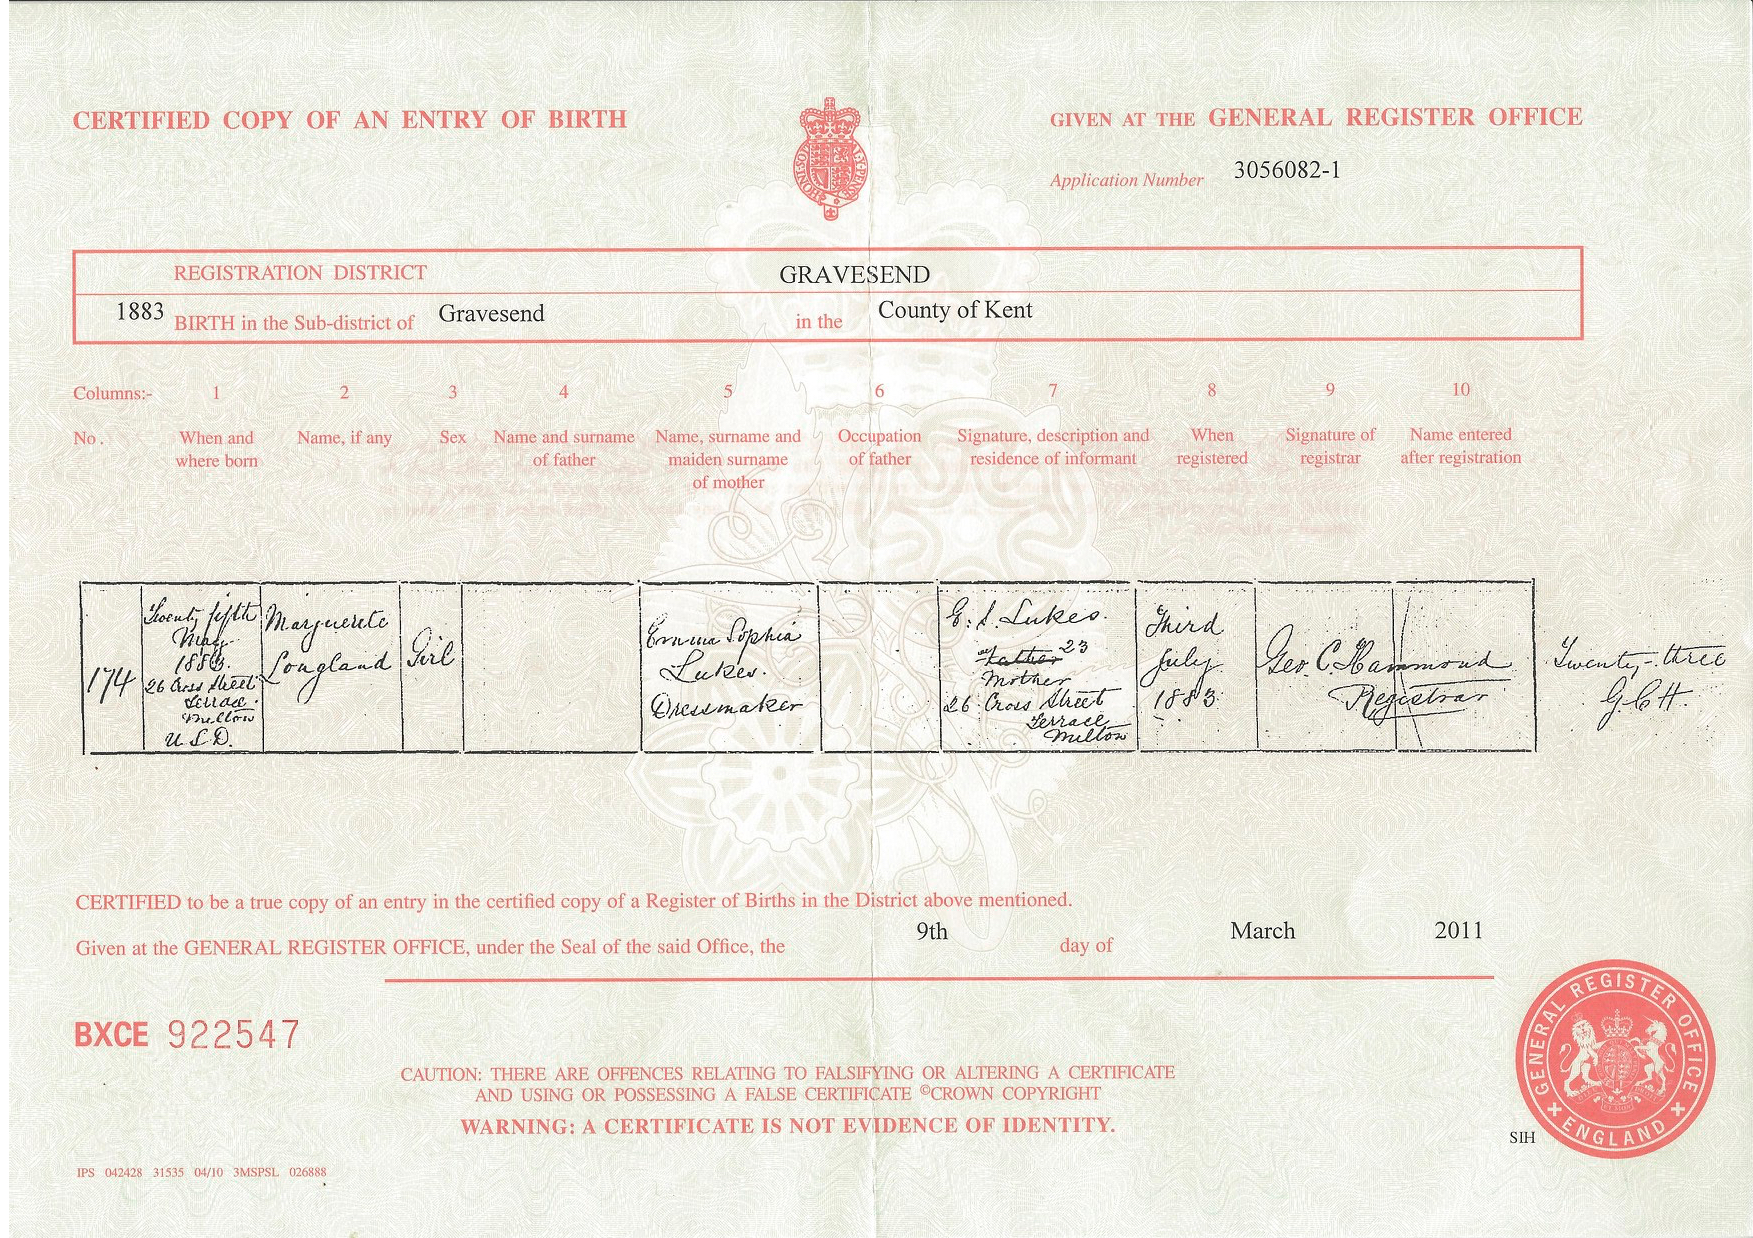 CERTIFIED COPY OF AN ENTRY OF BIRTH
GIVEN AT THE GENERAL REGISTER OFFICE
Application Number 3056082-1
REGISTRATION DISTRICT GRAVESEND
1883 BIRTH in the Sub-district of Gravesend in the County of Kent
Columns:- 1 2 3 4 5 6 7 8 9 10
No. When and where born
Name, if any
Sex
Name and surname of father
Name, surname and maiden surname of mother
Occupation of father
Signature, description and residence of informant
When registered
Signature of registrar
Name entered after registration
174
Twenty fifth
May
1883.
26 Cross Street
Terrace.
Milton
U.S.D.
Marguerite
Longland
Girl
Emma Sophia
Lukes.
Dressmaker
E. S. Lukes.
Father 23
Mother
26 Cross Street
Terrace
Milton
Third
July
1883
Geo. C. Hammond
Registrar
Twenty-three
G.C.H.
CERTIFIED to be a true copy of an entry in the certified copy of a Register of Births in the District above mentioned.
Given at the GENERAL REGISTER OFFICE, under the Seal of the said Office, the 9th day of March 2011
BXCE 922547
CAUTION: THERE ARE OFFENCES RELATING TO FALSIFYING OR ALTERING A CERTIFICATE
AND USING OR POSSESSING A FALSE CERTIFICATE ©CROWN COPYRIGHT
WARNING: A CERTIFICATE IS NOT EVIDENCE OF IDENTITY.
GENERAL REGISTER OFFICE
ENGLAND
SIH
IPS 042428 31535 04/10 3MSPSL 026888